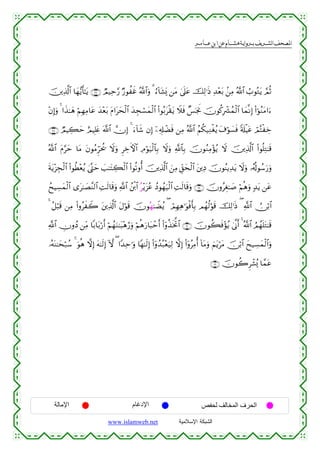 المصحف الشريف برواية هشام عن ابن عامر
ثُمَّ يَتُوبُ ٱللَّهُ مِنۢ بَعْدِ ذَٰلِكَ عَلَىٰ مَن يَشَآءُ ۗ وَٱللَّهُ غَفُورٌ رَّحِيمٌ ﴿٢٧﴾ يَـٰٓأَيُّهَا ٱلَّذِينَ
ءَامَنُوٓا۟ إِنَّمَا ٱلْمُشْرِكُونَ نَجَسٌ فَلَا يَقْرَبُوا۟ ٱلْمَسْجِدَ ٱلْحَرَامَ بَعْدَ عَامِهِمْ هَـٰذَا ۚ وَإِنْ
خِفْتُمْ عَيْلَةً فَسَوْفَ يُغْنِيكُمُ ٱللَّهُ مِن فَضْلِهِۦٓ إِن شَآءَ ۚ إِنَّ ٱللَّهَ عَلِيمٌ حَكِيمٌ ﴿٢٨﴾
قَـٰتِلُوا۟ ٱلَّذِينَ لَا يُؤْمِنُونَ بِٱللَّهِ وَلَا بِٱلْيَوْمِ ٱلْـَٔاخِرِ وَلَا يُحَرِّمُونَ مَا حَرَّمَ ٱللَّهُ
وَرَسُولُهُۥ وَلَا يَدِينُونَ دِينَ ٱلْحَقِّ مِنَ ٱلَّذِينَ أُوتُوا۟ ٱلْكِتَـٰبَ حَتَّىٰ يُعْطُوا۟ ٱلْجِزْيَةَ
عَن يَدٍ وَهُمْ صَـٰغِرُونَ ﴿٢٩﴾ وَقَالَتِ ٱلْيَهُودُ عُزَيْرُ ٱبْنُ ٱللَّهِ وَقَالَتِ ٱلنَّصَـٰرَى ٱلْمَسِيحُ
ٱبْنُ ٱللَّهِ ۖ ذَٰلِكَ قَوْلُهُم بِأَفْوَٰهِهِمْ ۖ يُضَـٰهُونَ قَوْلَ ٱلَّذِينَ كَفَرُوا۟ مِن قَبْلُ ۚ
قَـٰتَلَهُمُ ٱللَّهُ ۚ أَنَّىٰ يُؤْفَكُونَ ﴿٣٠﴾ ٱتَّخَذُوٓا۟ أَحْبَارَهُمْ وَرُهْبَـٰنَهُمْ أَرْبَابًا مِّن دُونِ ٱللَّهِ
وَٱلْمَسِيحَ ٱبْنَ مَرْيَمَ وَمَآ أُمِرُوٓا۟ إِلَّا لِيَعْبُدُوٓا۟ إِلَـٰهًا وَٰحِدًا ۖ لَّآ إِلَـٰهَ إِلَّا هُوَ ۚ سُبْحَـٰنَهُۥ
عَمَّا يُشْرِكُونَ ﴿٣١﴾
الحرف المخالف لحفص الإدغام الإمالة
الشبكة الإسلامية www.islamweb.net